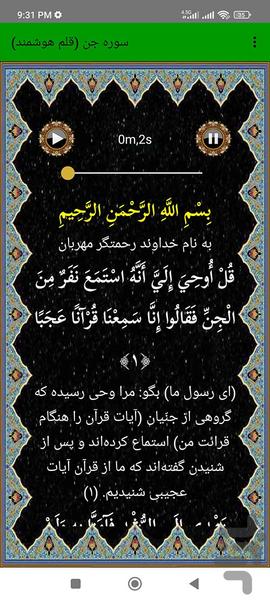 9:31 PM
سوره جن (قلم هوشمند)
0m,2s
بِسْمِ اللَّهِ الرَّحْمَنِ الرَّحِيمِ
به نام خداوند رحمتگر مهربان
قُلْ أُوحِيَ إِلَيَّ أَنَّهُ اسْتَمَعَ نَفَرٌ مِنَ
الْجِنِّ فَقَالُوا إِنَّا سَمِعْنَا قُرْآنًا عَجَبًا
﴿۱﴾
(ای رسول ما) بگو: مرا وحی رسیده که
گروهی از جنّیان (آیات قرآن را هنگام
قرائت من) استماع کرده‌اند و پس از
شنیدن گفته‌اند که ما از قرآن آیات
عجیبی شنیدیم. (۱)